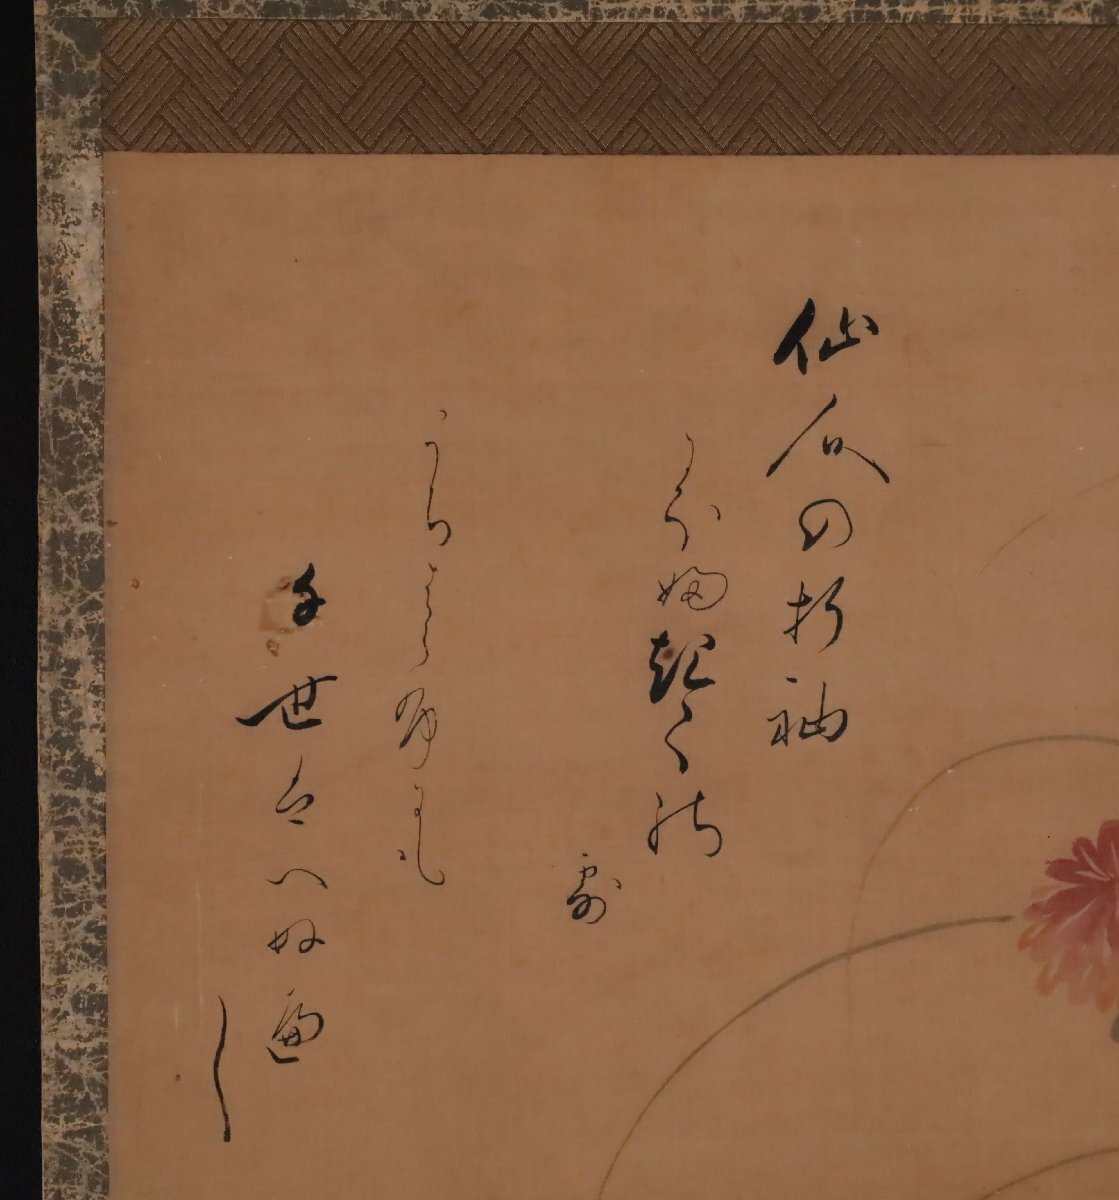 仙人の折袖
にほ婦起く能
露
うちはらふにも
千世はへぬ遍
し